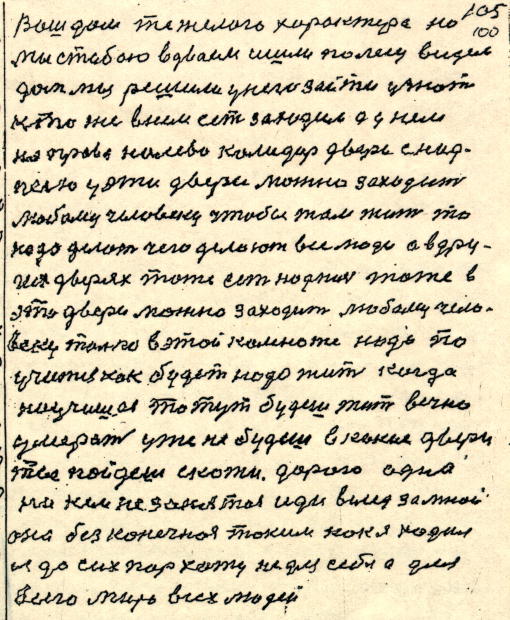 105
100
Ваш дом тежелого характера но
мы стабою вдваем шли полесу видем
дом мы решили унего зайти узнат
кто же внем ест заходим а у нем
на права налево калидар двери с над-
писю у эти двери можно заходит
любому человеку чтобы там жит то
надо делат чего делают все люди а вдру-
гих дверях тоже ест надпис тоже в
эти двери можно заходит любому чело-
веку толко вэтой комнате надо по
учится как будет надо жит когда
научишся то тут будеш жит вечно
умерат уже не будеш вкакие двери
ты пойдеш скажи. дорога адна
ни кем не занятая иди вслед замной
она без конечная таким как я ходил
и до сих пор хожу не для себя а для
всего мира всех людей